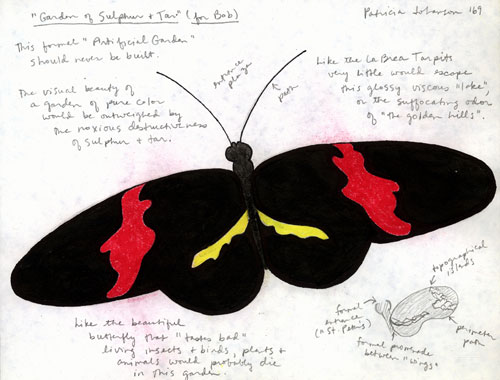 "Garden of Sulphur + Tar" (for Bob)
Patricia Johanson '69
This formal "Artificial Garden"
should never be built.
The visual beauty of
a garden of pure color
would be outweighed by
the noxious destructiveness
of sulphur + tar.
entrance
plaza
path
Like the La Brea Tarpits
very little would escape
this glossy viscous "lake"
or the suffocating odor
of "the golden hills".
Like the beautiful
butterfly that "tastes bad"
living insects + birds, plants +
animals would probably die
in this garden.
topographical
islands
formal
entrance
(St. Peter's)
perimeter
path
formal promenade
between "wings"